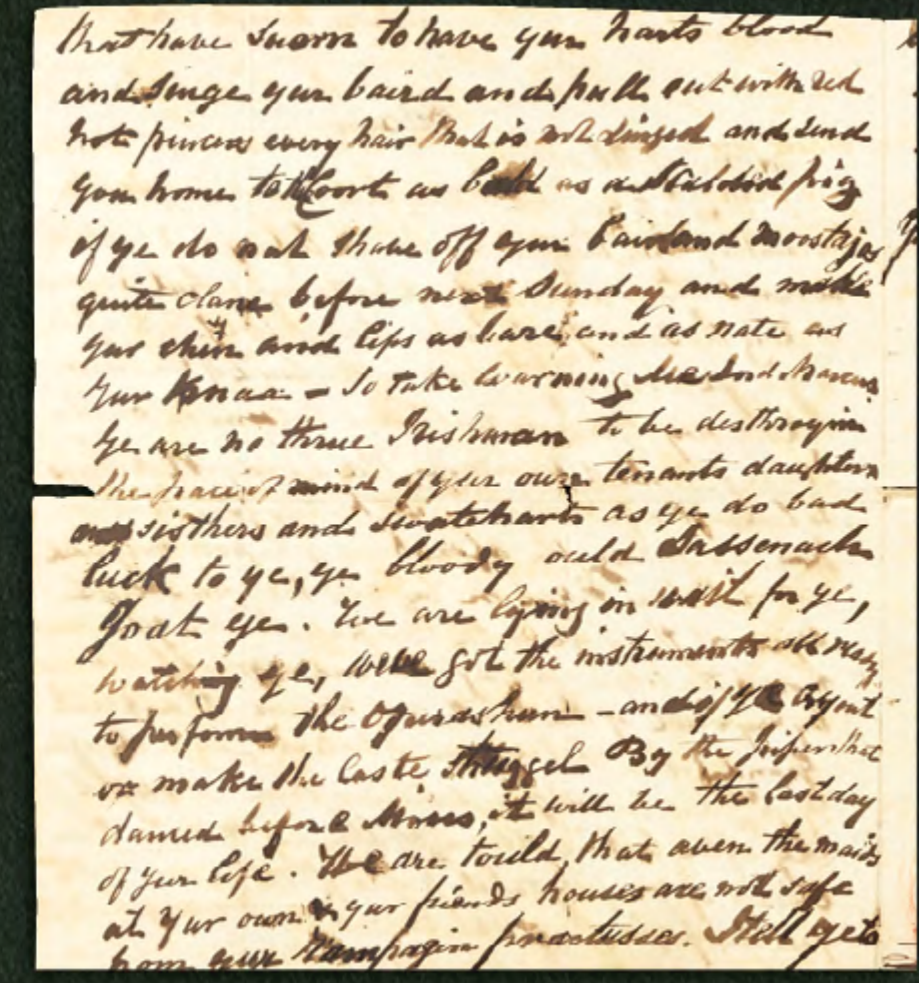 that have sworn to have yur harts blood
and singe yur baird and pull out with red
hot pincers every hair that is not singed and send
you home to as bald as a scalded pig
if ye do not shave off yur baird and moostajes
quite clane before next Sunday and make
yur chin and lips as bare and as nate as
yur Knaa - So take warning Me Lord
Ye are no thrue Irishman to be desthroyin
the pace of mind of yur own tenants daughters
and sisthers and sweetharts as ye do bad
luck to ye, ye bloody ould Sassenach
Goat ye. We are lying in wait for ye,
watching ye, weve got the instruments all ready
to perform the Operashun - and if ye cry out
or make the laste struggel By the Piper that
danced before Moses, it will be the last day
of yur life. We are tould, that aven the maids
at yur own & yur friends houses are not safe
from yur rampagin practusses. I tell ye to